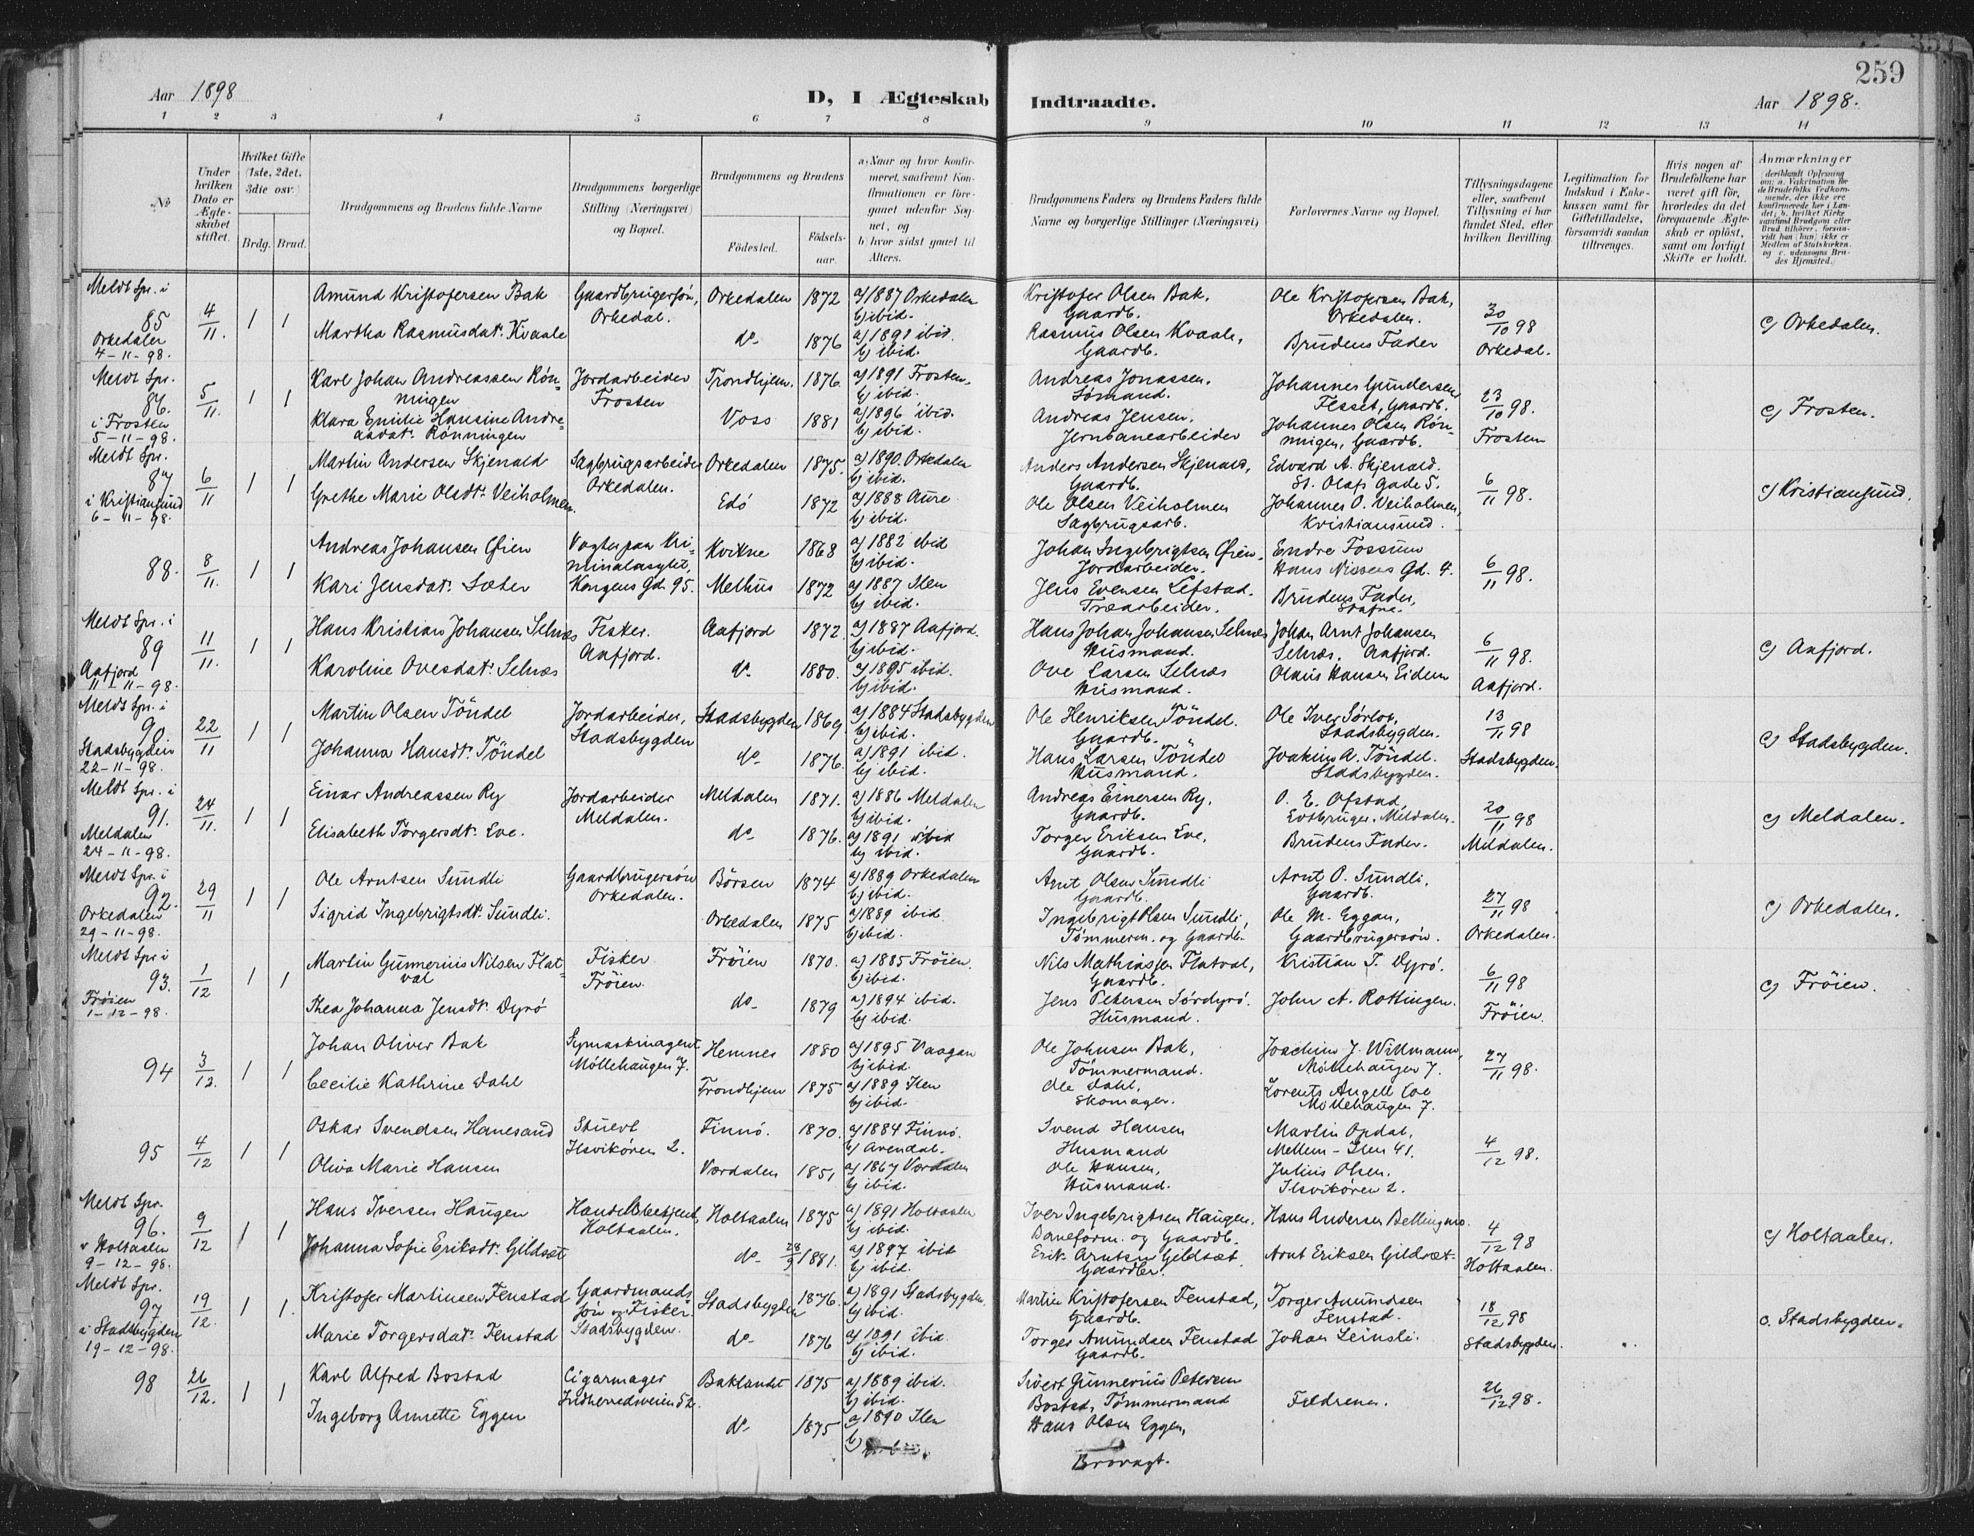 259
Aar 1898
D, I Ægteskab Indtraadte.
Aar 1898.
1 2 3 4 5 6 7 8 9 10 11 12 13 14
No
Under hvilken Dato er Ægteskabet stiftet.
Hvilket Gifte (1ste, 2det, 3die osv.)
Brdg. Brud.
Brudgommens og Brudens fulde Navne
Brudgommens borgerlige Stilling (Næringsvei) og Bopæl.
Brudgommens og Brudens
Fødested. Fødselsaar.
a) Naar og hvor konfirmeret, saafremt Konfirmationen er foregaaet udenfor Sognet, og
b) hvor sidst gaaet til Alters.
Brudgommens Faders og Brudens Faders fulde Navne og borgerlige Stillinger (Næringsvei)
Forlovernes Navne og Bopæl.
Tillysningsdagene eller, saafremt Tillysning ei har fundet Sted, efter hvilken Bevilling.
Legitimation for Indskud i Enkekassen samt for Giftetilladelse, forsaavidt saadan tiltrænges.
Hvis nogen af Brudefolkene har været gift før, hvorledes da det foregaaende Ægteskab er opløst, samt om lovligt Skifte er holdt.
Anmærkninger
Meldt Spr. i
85
Orkedalen
4-11-98.
4/11. 1 1
Amund Kristofersen Bak Gaardbrugersøn, Orkedalen 1872 a) 1887 Orkedalen Kristofer Olsen Bak, Ole Kristofersen Bak, 30/10 98 c) Orkedalen.
Orkedal. b) ibid. Gaardb. Orkedalen.
Martha Rasmusdatr. Kvaale do 1876 a) 1891 ibid. Rasmus Olsen Kvaale, Brudens Fader Orkedal.
b) ibid. Gaardb.
Meldt Spr.
86.
i Frosten
5-11-98.
5/11. 1 1
Karl Johan Andreassen Røn- Jordarbeider Trondhjem. 1876. a) 1891 Frosten, Andreas Jonassen, Johannes Gundersen 23/10 98. c) Frosten.
ningen Frosten b) ibid. Sømand. Fesset, Gaardb.
Klara Emilie Hansine Andre- Voss 1881 a) 1896 ibid. Andreas Jensen, Johannes Olsen Røn- Frosten
asdatr. Rønningen b) ibid. Jernbanearbeider ningen, Gaardb.
Meldt Spr.
87
i Kristiansund
6-11-98.
6/11 1 1
Martin Andersen Skjenald Sagbrugsarbeider Orkedalen 1875. a) 1890. Orkedalen Anders Andersen Skjenald, Edvard A. Skjenald. 6/11 98. c) Kristiansund.
Orkedalen. b) ibid. Gaardb. St. Olafs Gade 5.
Grethe Marie Olsdtr. Veiholmen. Edö 1872 a) 1888 Aure. Ole Olsen Veiholmen Johannes O. Veiholmen,
b) ibid. Sagbrugsarb. Kristiansund.
88. 8/11. 1 1
Andreas Johansen Øien Vogter paa Kri- Kvikne 1868 a) 1882 ibid Johan Ingebrigtsen Øien, Endre Fossum 6/11 98.
minalasylet, b) ibid. Jordarbeider. Hans Nissens Gd. 4.
Kari Jensdatr. Sæter Kongens Gd. 95. Melhus 1872 a) 1887 Ilen Jens Evensen Lefstad. Brudens Fader,
b) ibid. Træarbeider.
Meldt Spr. i
89
Aafjord
11-11-98.
11/11. 1 1
Hans Kristian Johansen Selnæs Fisker. Aafjord 1872. a) 1887 Aafjord. Hans Johan Johansen Selnæs Johan Arnt Johansen 6/11 98. c) Aafjord.
Aafjord. b) ibid. Husmand. Selnæs, Aafjord.
Karoline Ovesdatr. Selnæs do 1880. a) 1895 ibid. Ove Larsen Selnæs Olaus Hansen Eidem Aafjord.
b) ibid. Husmand.
Meldt Spr. i
90.
Stadsbygden
22-11-98.
22/11 1 1
Martin Olsen Töndel Jordarbeider, Stadsbygden 1869. a) 1884 Stadsbygden Ole Henriksen Töndel. Ole Iver Sørlot, 13/11 98 c) Stadsbygden.
Stadsbygden b) ibid. Gaardb. Stadsbygden.
Johanna Hansdtr. Töndel do 1876. a) 1891 ibid. Hans Larsen Töndel Joakim A. Töndel. Stadsbygden.
b) ibid. Husmand. Stadsbygden.
Meldt Spr. i
91.
Meldalen
24-11-98.
24/11. 1 1
Einar Andreassen Ry Jordarbeider Meldalen 1871. a) 1886 Meldalen Andreas Einersen Ry, O. E. Ofstad, 20/11 98 c) Meldalen.
Meldalen. b) ibid. Gaardb. Meldalen.
Elisabeth Torgersdtr. Eve. do 1876. a) 1891 ibid Torger Eriksen Eve, Brudens Fader. Meldalen.
b) ibid. Gaardb.
Meldt Spr. i
92.
Orkedalen
29-11-98.
29/11 1 1
Ole Arntsen Sundli Gaardbrugersøn Börsen 1874 a) 1889 Orkedalen Arnt Olsen Sundli Arnt O. Sundli, 27/11 98 c) Orkedalen.
Orkedalen. b) ibid. Gaardb. Gaardb.
Sigrid Ingebrigtsdtr. Sundli. Orkedalen 1875 a) 1889 ibid. Ingebrigt Olsen Sundli, Ole M. Eggan, Orkedalen.
b) ibid. Tømmerm. og Gaardb. Gaardbrugersøn.
Meldt Spr. i
93.
Fröien
1-12-98.
1/12 1 1
Martin Gunnerius Nilsen Flat- Fisker Fröien 1870. a) 1885 Fröien. Nils Mathiassen Flatval, Kristian J. Dyrö. 6/11 98 c) Fröien.
val Fröien. b) ibid. Gaardb.
Thea Johanna Jensdtr. Dyrö do 1879 a) 1894 ibid. Jens Petersen Sördyrö. John A. Rottingen. Fröien.
b) ibid. Husmand.
94 3/12. 1 1
Johan Oliver Bak Symaskinagent Hemnes 1880 a) 1895 Vaagan Ole Johnsen Bak, Joachim J. Wittmann, 27/11 98.
Möllehaugen 7. b) ibid. Tömmermand. Möllehaugen 7.
Cecilie Kathrine Dahl Trondhjem 1875 a) 1889 Ilen Ole Dahl, Lorents Angell Coe
b) ibid. Skomager. Möllehaugen 7.
95 4/12 1 1
Oskar Svendsen Hanesand Stuert Finnö. 1870. a) 1884 Finnö. Svend Hansen Martin Opdal, 4/12 98.
Ilsvikören 2. b) Arendal. Husmand Mellem-Ilen 41.
Oliva Marie Hansen Værdalen 1851 a) 1867 Værdalen Ole Hansen, Julius Olsen.
b) ibid. Husmand. Ilsvikören 2.
Meldt Spr.
96.
v Holtaalen
9-12-98.
9/12 1 1
Hans Iversen Haugen Handelsbetjent, Holtaalen 1875 a) 1891 Holtaalen Iver Ingebrigtsen Haugen. Hans Andersen Bellingmo. 4/12 98 c) Holtaalen.
Holtaalen. b) ibid. Baneform. og Gaardb.
Johanna Sofie Eriksdtr. Gildset do 28/9 1881. a) 1897 ibid Erik Arntsen Gildset. Arnt Eriksen Gildset. Holtaalen.
b) ibid. Gaardbr.
Meldt Spr.
97
i Stadsbygden
19-12-98.
19/12. 1 1.
Kristofer Martinsen Fenstad Gaardmands- Stadsbygden 1876. a) 1891 Stadsbygden. Martin Kristofersen Fenstad, Torger Amundsen 18/12 98 c. Stadsbygden.
søn og Fisker b) ibid. Gaardb. Fenstad.
Marie Torgersdatr. Fenstad Stadsbygden. do 1876 a) 1891 ibid. Torger Amundsen Fenstad Johan Leinsli. Stadsbygden.
b) ibid. Gaardb.
98 26/12. 1 1
Karl Alfred Bostad Cigarmager Baklandet 1875 a) 1889 ibid. Sivert Gunnerius Petersen Fædrene. 26/12 98.
Indherredsveien 52. b) ibid. Bostad, Tømmermand
Ingeborg Annette Eggen do 1875 a) 1890 Ilen Hans Olsen Eggen,
b) ibid. Brovagt.